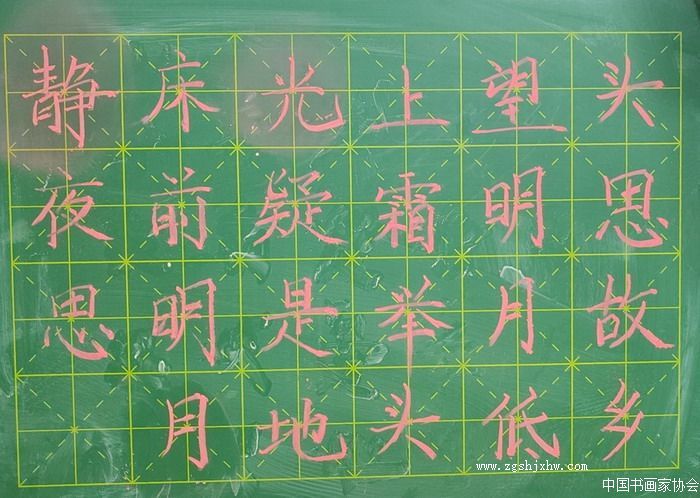 静夜思
床前明月
光疑是地
上霜举头
望明月低
头思故乡
www.zgshjxhw.com
中国书画家协会